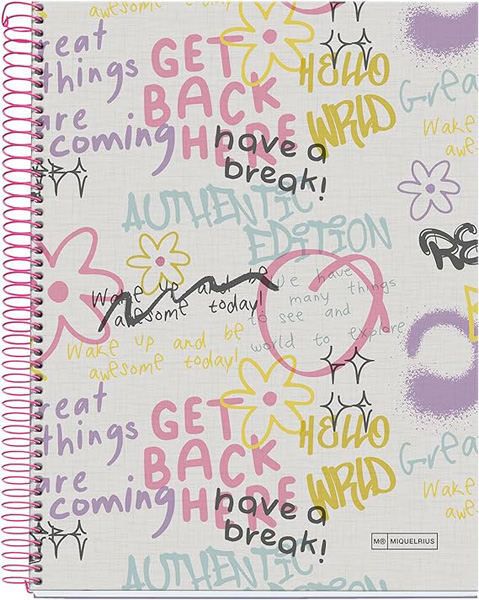 awesome today!
Great
things
are
coming
GET
BACK
HERE
HELLO
WRLD
have a
break!
Grea
Wake
awes
AUTHENTIC
EDITION
RE
Wake up and be
awesome today!
We have
many things
to see and
world to explore
Wake up and be
awesome today!
great
things
are
coming
GET
BACK
HERE
HELLO
WRLD
have a
break!
Grea
Wake
awes
M® MIQUELRIUS
AUTHENTIC
EDITION